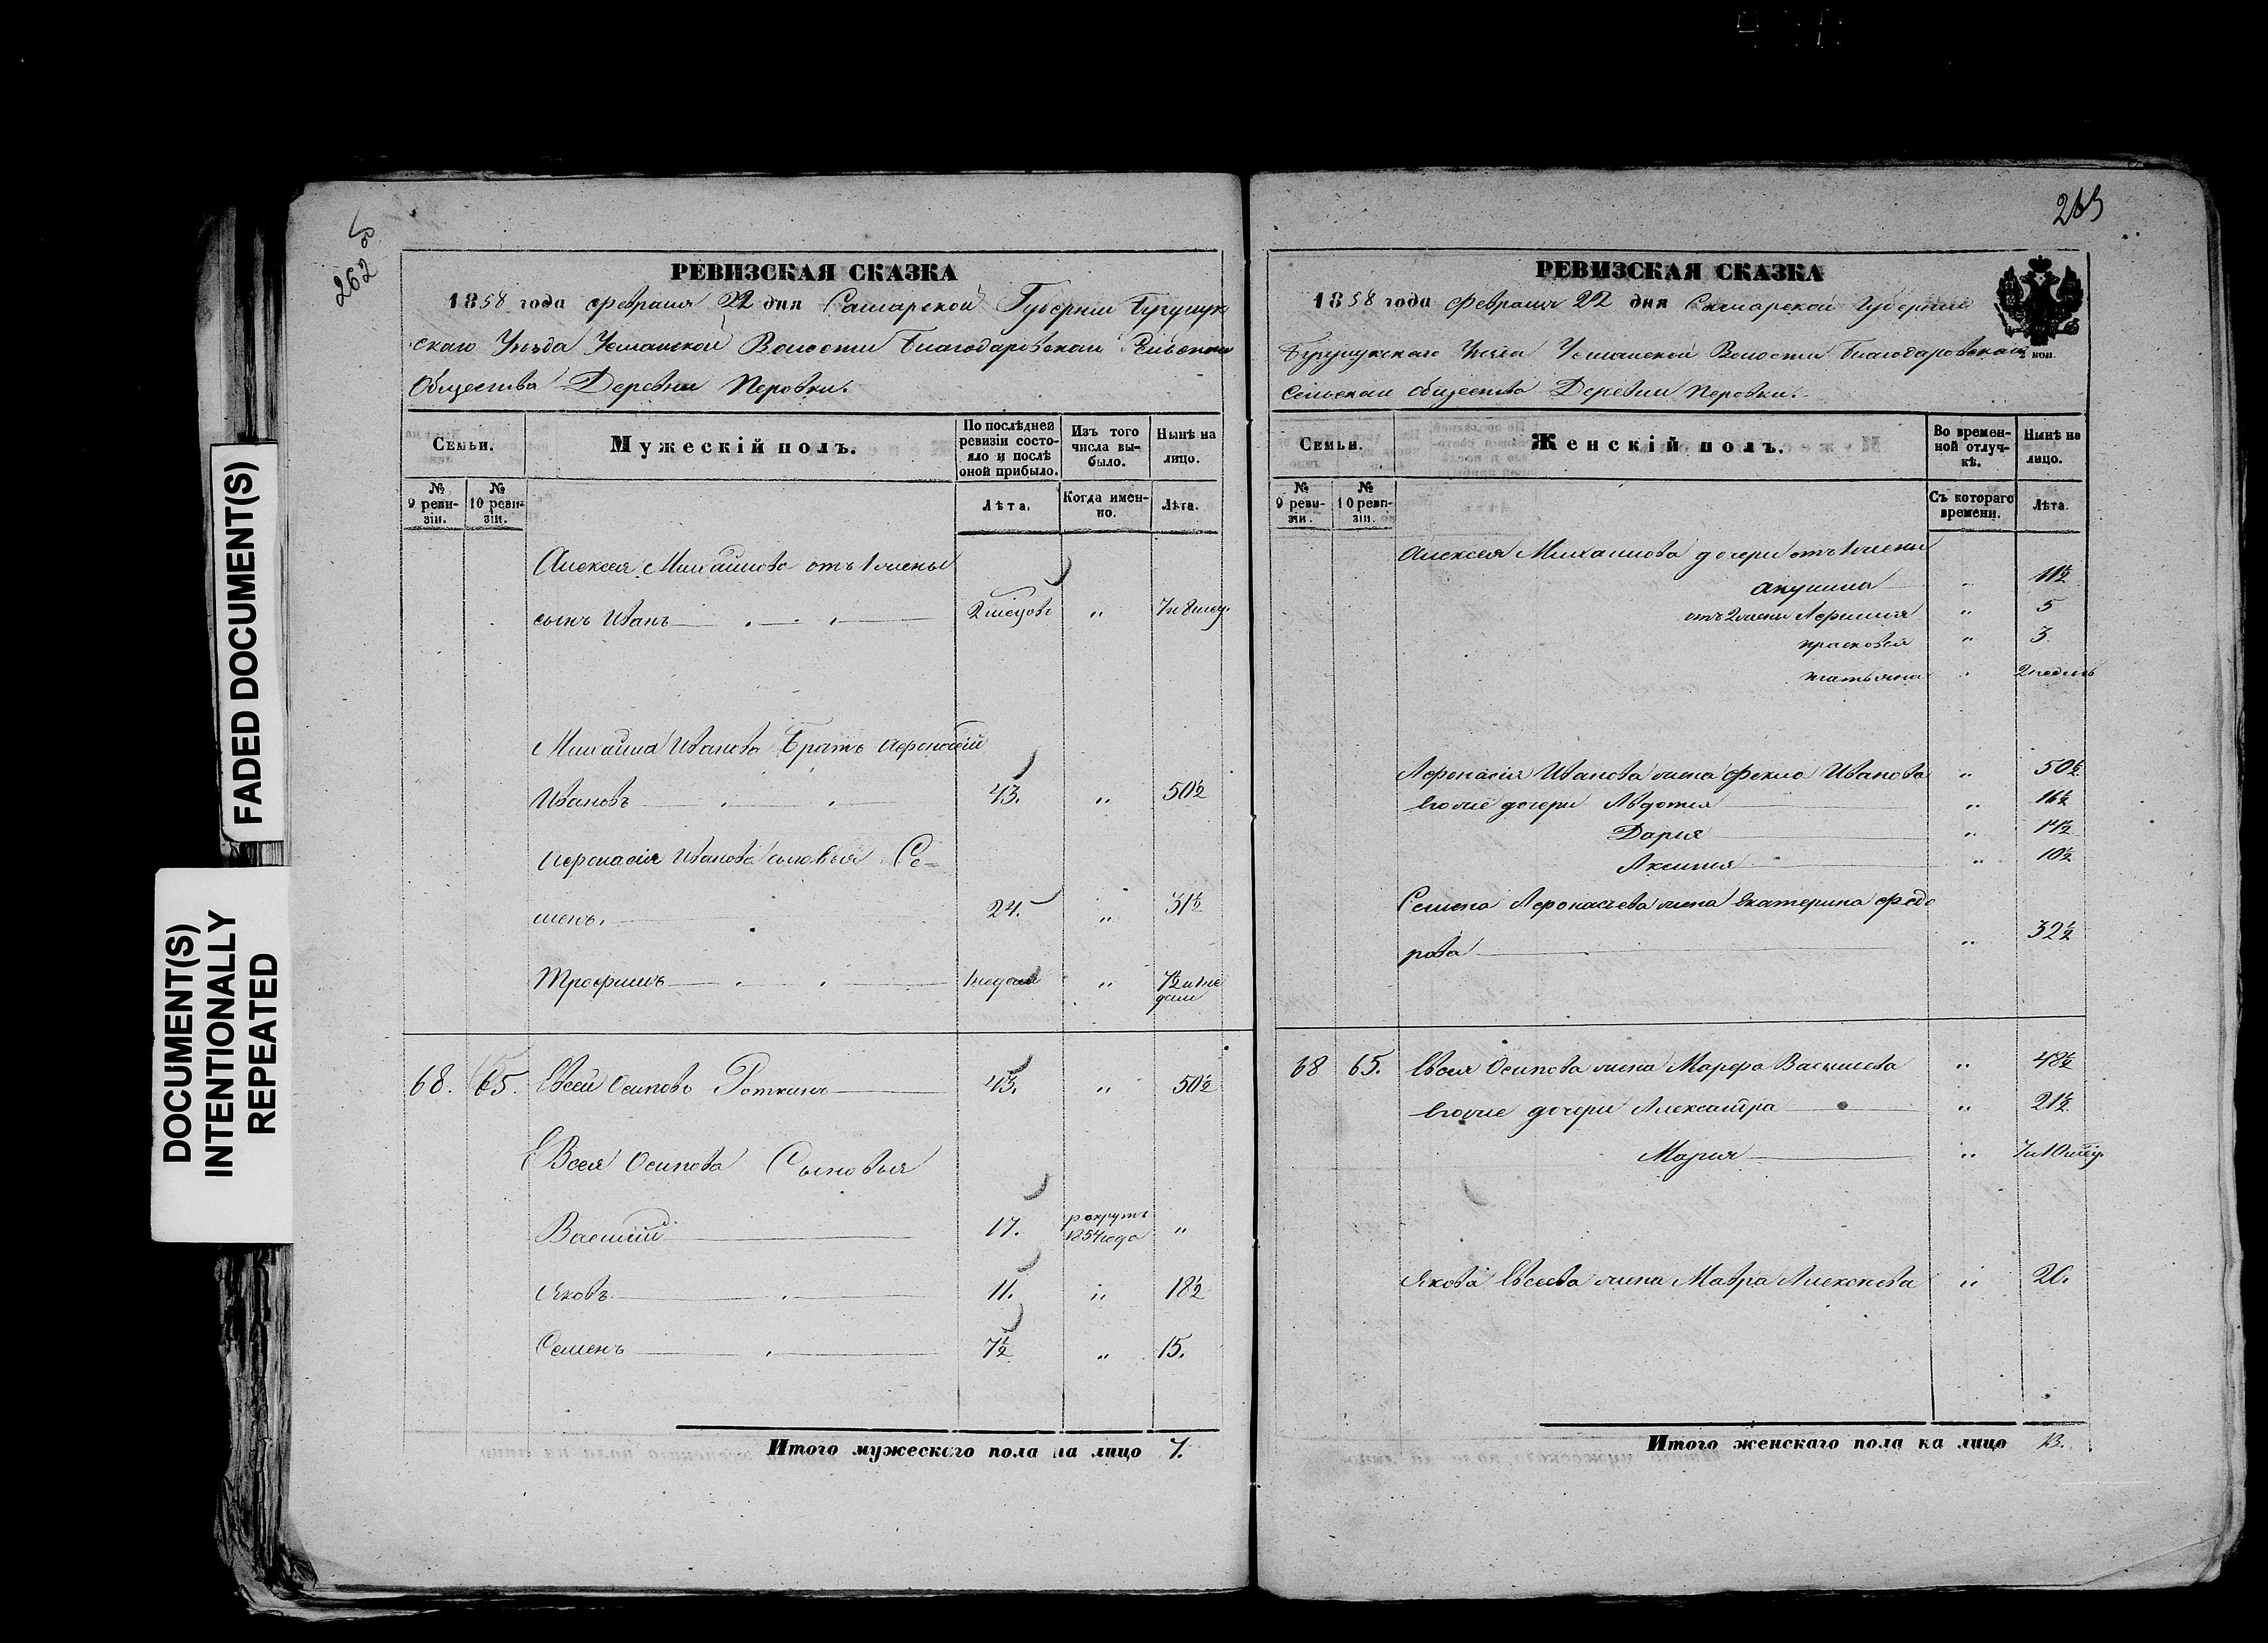 FADED DOCUMENT(S)
DOCUMENT(S)
INTENTIONALLY
REPEATED
262
РЕВИЗСКАЯ СКАЗКА
1858 года февраля 22 дня Самарской Губерніи Бугурук
скаго Уѣзда Усманской Волости Благодаровскаго Сельскаго
Общества Деревни Перовки.
Семьи.
Мужескій полъ.
По послѣдней ревизіи состояло и послѣ оной прибыло.
Изъ того числа выбыло.
Нынѣ на лицо.
№ 9 ревизіи.
№ 10 ревизіи.
Лѣта.
Когда именно.
Лѣта.
Алексея Михайлова отъ 1 жены
сынъ Иванъ 2 месяцовъ „ 7 и 8 мец.
Михайла Иванова братъ Афонасій
Ивановъ 43. „ 50½
Афонасія Иванова сыновья Се-
менъ. 24. „ 31½
Трофимъ 1 неделя „ 7½ и 1 не
дели
68. 65. Евсей Осиповъ Роткинъ 43. „ 50½
Евсея Осипова Сыновья
Василий 17. рекрутъ 1854 года „
Яковъ 11. „ 18½
Семенъ 7½ „ 15.
Итого мужескаго пола на лицо 7.
263
РЕВИЗСКАЯ СКАЗКА
1858 года февраля 22 дня Самарской Губерніи
Бугурукскаго Уезда Усманской Волости Благодаровскаго
коп.
Сельскаго общества Деревни Перовки.
Семьи.
Женскій полъ.
Во временной отлучкѣ.
Нынѣ на лицо.
№ 9 ревизіи.
№ 10 ревизіи.
Съ котораго времени.
Лѣта.
Алексея Михайлова дочери отъ 1 жены
Акулина „ 11½
отъ 2 жены Афимия „ 5
прасковья „ 3.
татьяна „ 2 недель
Афонасія Иванова жена фекла Иванова „ 50½
Его же дочери Авдотья „ 16½
Дарья „ 14½
Аксинья „ 10½
Семена Афонасьева жена Екатерина федо
рова „ 32½
68 65. Евсея Осипова жена Марфа Васильева „ 48½
Его же дочери Александра „ 21½
Марья „ 7 и 10 мец.
Якова Евсеева жена Мавра Алексеева „ 20.
Итого женскаго пола на лицо 13.